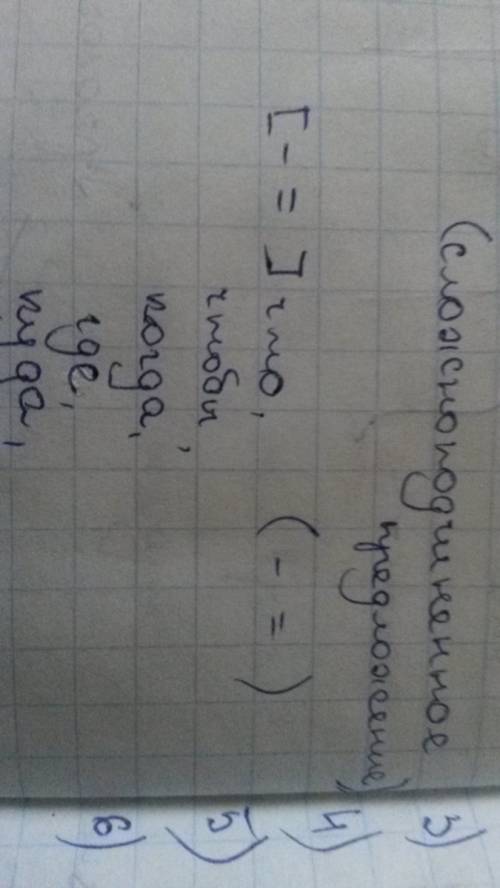 (сложноподчиненное
предложение)
[ - = ] что, ( - = )
чтобы,
когда,
где,
куда,
3)
4)
5)
6)